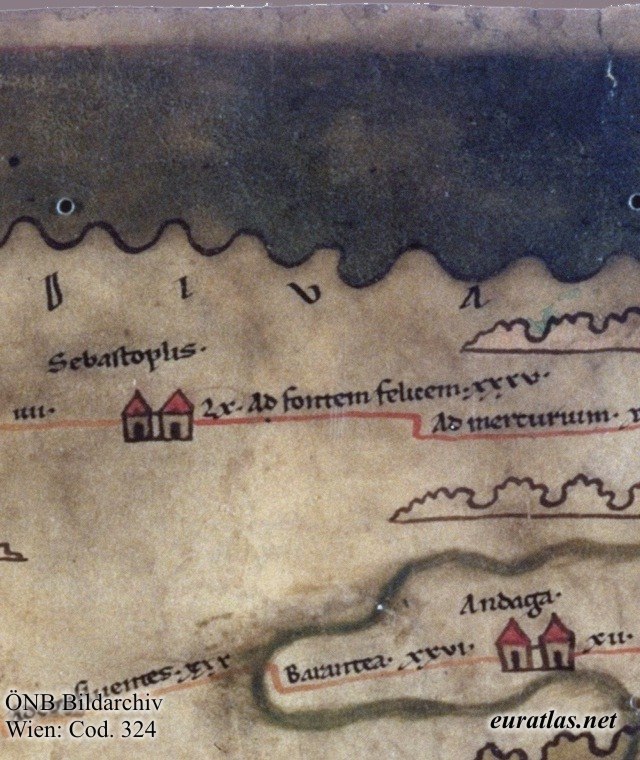 D I V A
Sebastoplis·
IIII·
LX· Ad fontem felicem·XXXV·
Ad mercurium·
Andaga·
XII·
Barantea· XXVI·
fluentes·XXX
ÖNB Bildarchiv
Wien: Cod. 324
euratlas.net